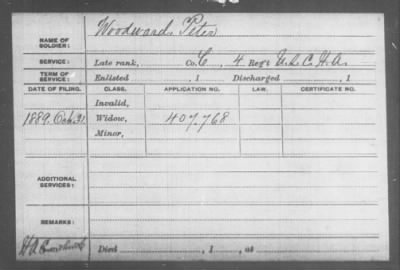 NAME OF SOLDIER: Woodward, Peter
SERVICE: Late rank, Co. C, 4 Reg't U.S.C.H.A.
TERM OF SERVICE: Enlisted , 1 Discharged , 1
DATE OF FILING. CLASS. APPLICATION NO. LAW. CERTIFICATE NO.
Invalid,
1889. Oct. 31 Widow, 407.768
Minor,
ADDITIONAL SERVICES:
REMARKS:
Died , 1 , at